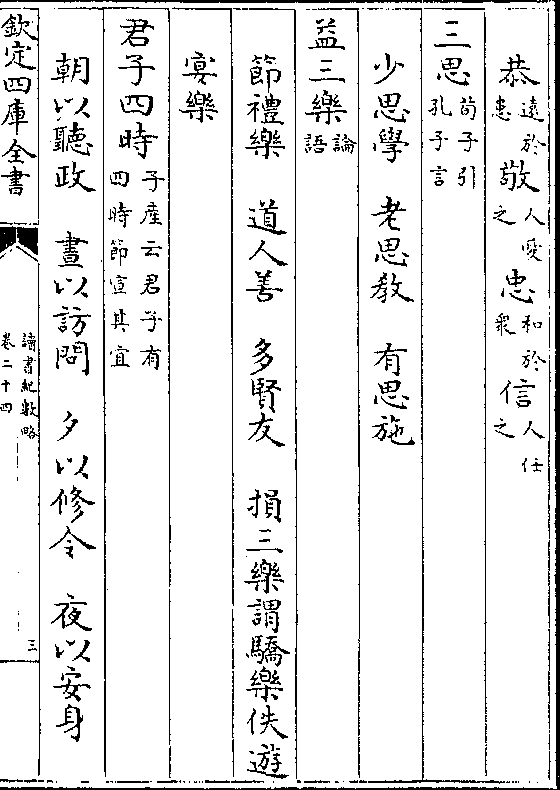 恭遠於患敬人愛之忠和於衆信人任之
三思荀子引孔子言
少思學　老思教　有思施
益三樂論語
節禮樂　道人善　多賢友　損三樂謂驕樂佚遊
宴樂
君子四時子産云君子有四時節宣其宜
朝以聽政　晝以訪問　夕以修令　夜以安身
欽定四庫全書　讀書紀數略卷二十四　三